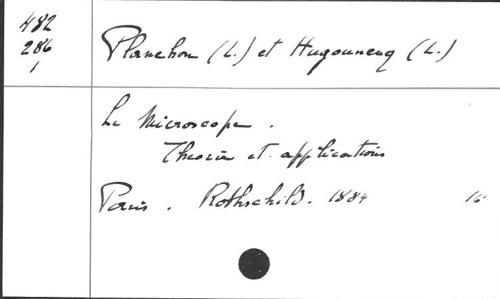 482
286
1
Planchon (L.) et Hugounenq (L.)
Le Microscope.
Théorie et applications
Paris. Rothschild. 1884 16